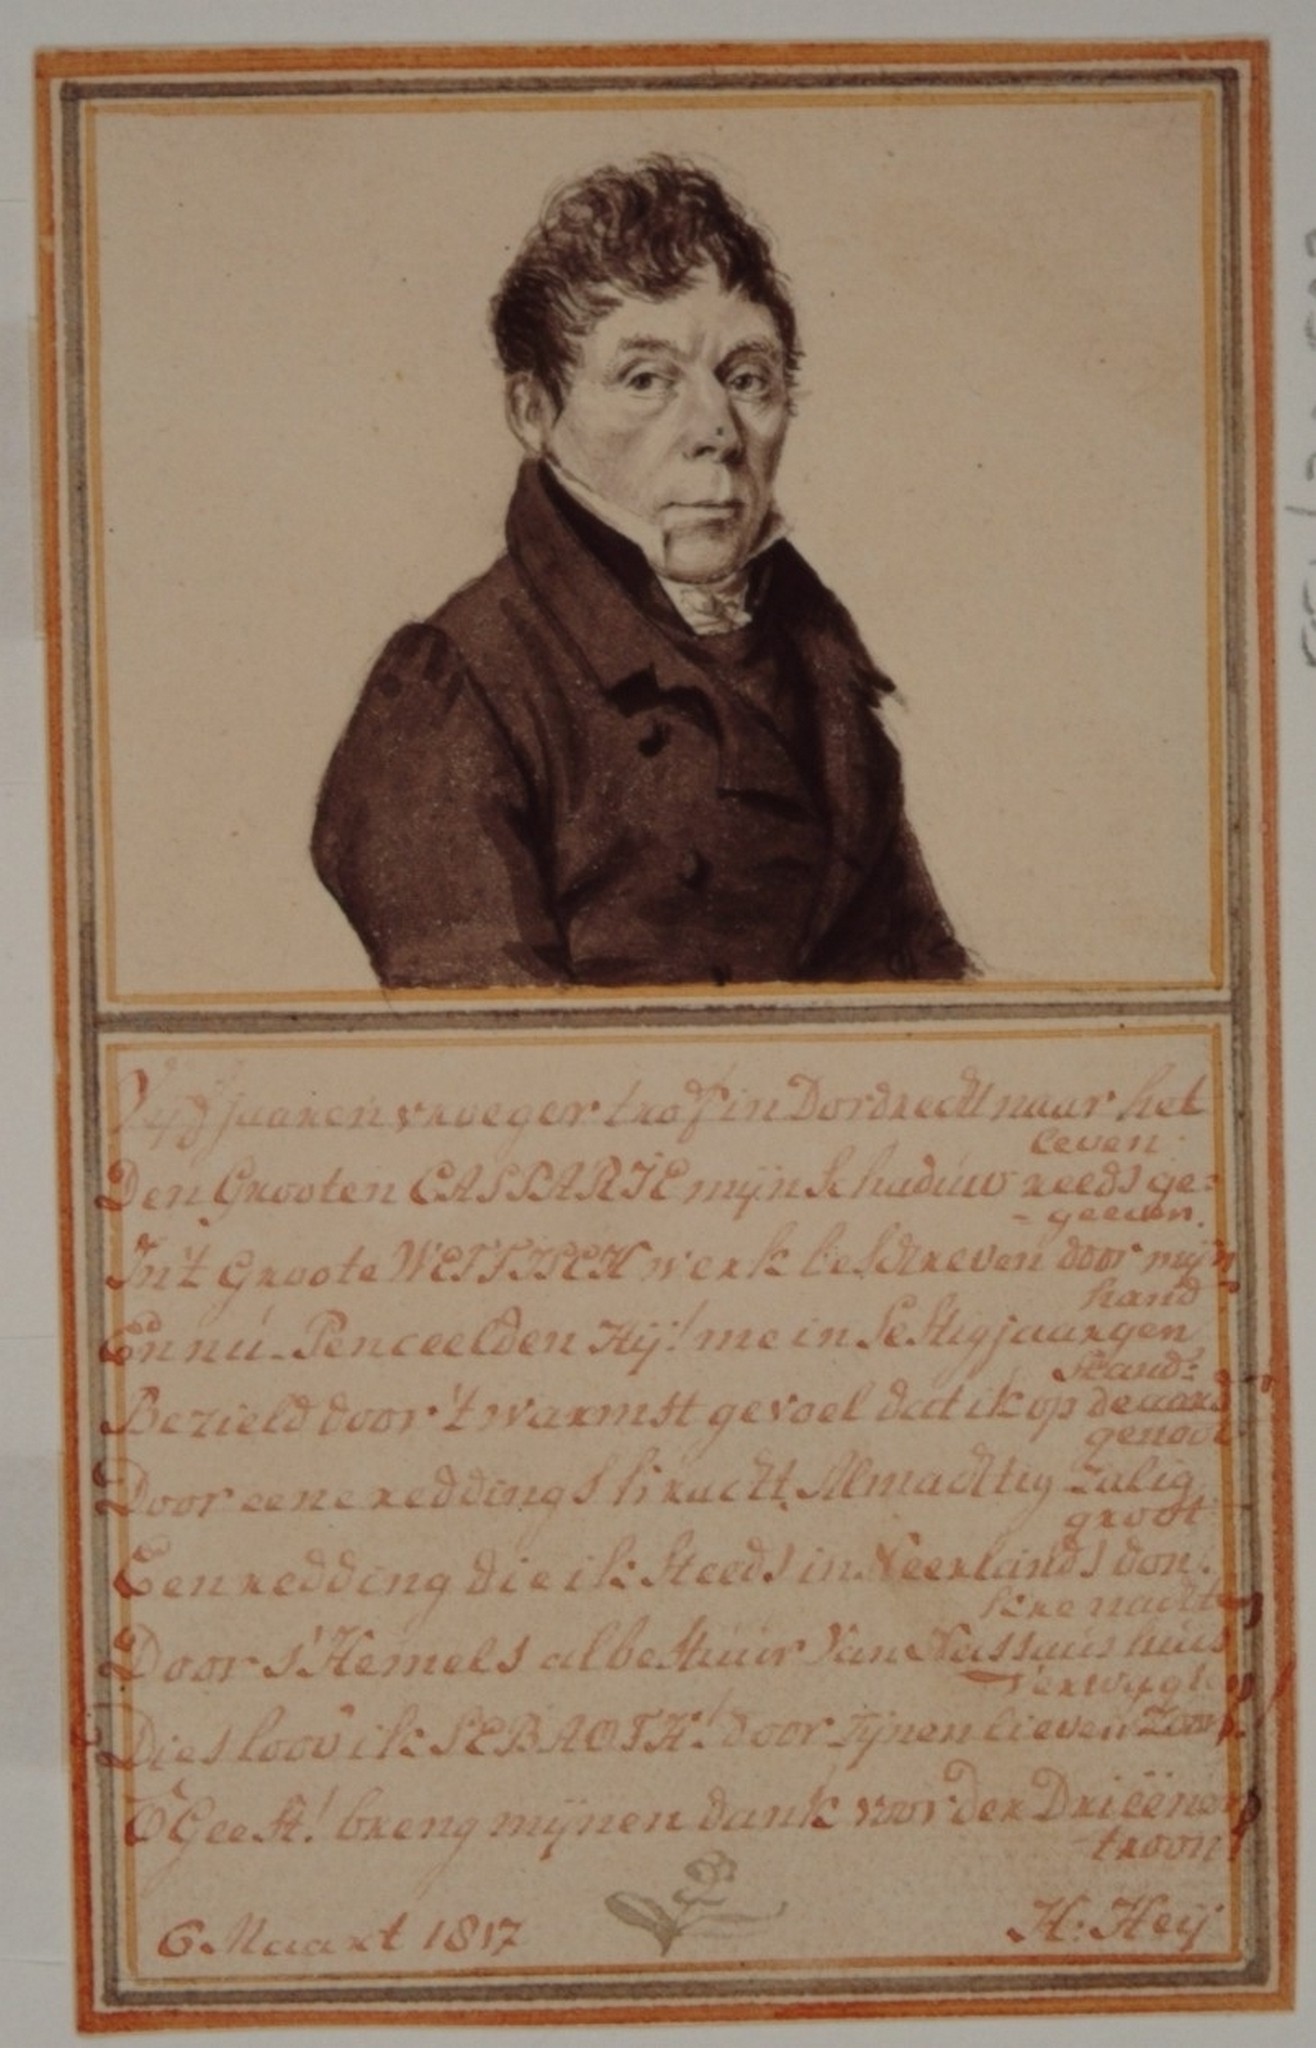 Vyf jaaren vroeger trof in Dordrecht naar het
leven
Den Grooten CASPARIE mijn schaduw reeds ge=
=geeven.
In't Groote WETTISCH werk beschreven door mijn
hand
En nu Penceelden Hij! me in Sestigjaargen
stand:
Bezield door 't warmst gevoel dat ik op de aard
genoot
Door eene reddings kracht Almachtig zalig
groot
Een redding die ik steeds in Neerlands don.
kre nachten
Door s'Hemels albestuur Van Nassaus huis
Dies loov ik SEBAOTH! door zijnen lieven Zoon
O Geest! breng mijnen dank voor der Drieëenen
troon
6 Maart 1817
H: Heij